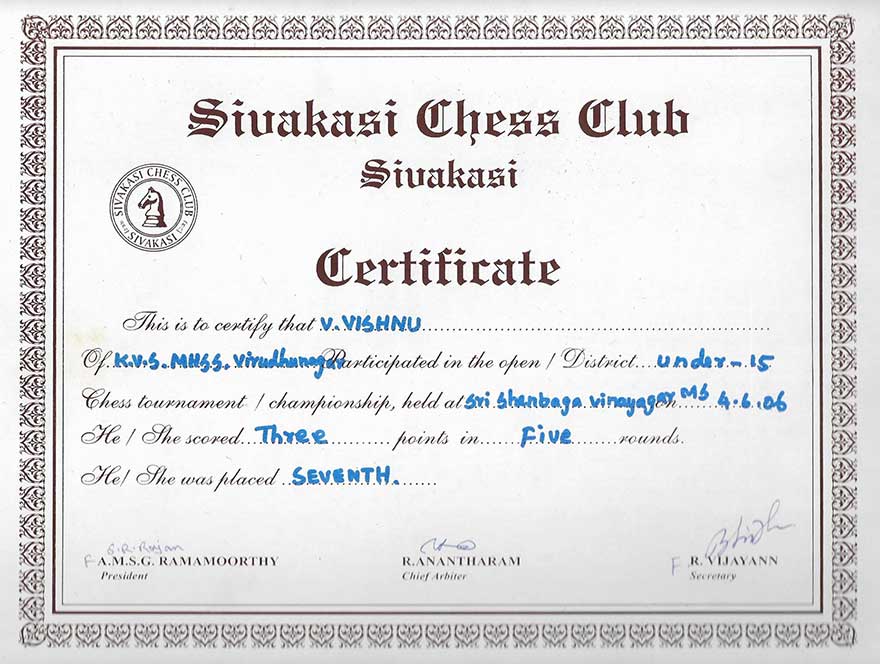 Sivakasi Chess Club
Sivakasi
SIVAKASI CHESS CLUB
SIVAKASI
Certificate
This is to certify that V. VISHNU
Of K.V.S. MHSS. Virudhunagar Participated in the open / District under-15
Chess tournament / championship, held at Sri Shanbaga Vinayagar MS On 4.6.06
He / She scored Three points in Five rounds.
He/ She was placed SEVENTH.
S.R. Rajan
F A.M.S.G. RAMAMOORTHY
President
R.ANANTHARAM
Chief Arbiter
F R. VIJAYANN
Secretary